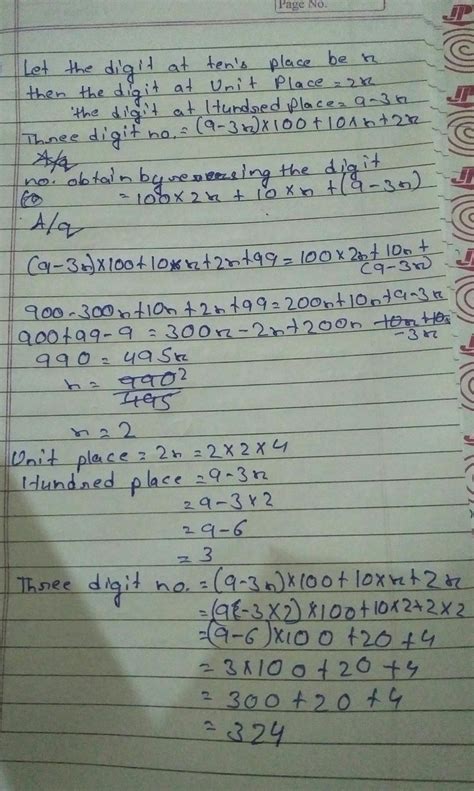 Page No.
Let the digit at ten's place be x
then the digit at Unit Place = 2x
the digit at Hundred place = 9-3x
Three digit no. = (9-3x)×100+10×x+2x
A/q
no. obtain by reversing the digit
= 100×2x + 10×x + (9-3x)
A/q
(9-3x)×100+10×x+2x+99 = 100×2x+10x+
(9-3x)
900-300x+10x+2x+99=200x+10x+9-3x
900+99-9 = 300x-2x+200x
-3x
990 = 495x
x = 990 2
495
x = 2
Unit place = 2x = 2×2×4
Hundred place = 9-3x
= 9-3×2
= 9-6
= 3
Three digit no. = (9-3x)×100+10×x+2x
= (9-3×2)×100+10×2+2×2
= (9-6)×100+20+4
= 3×100+20+4
= 300+20+4
= 324
JP
JP
JP
JP